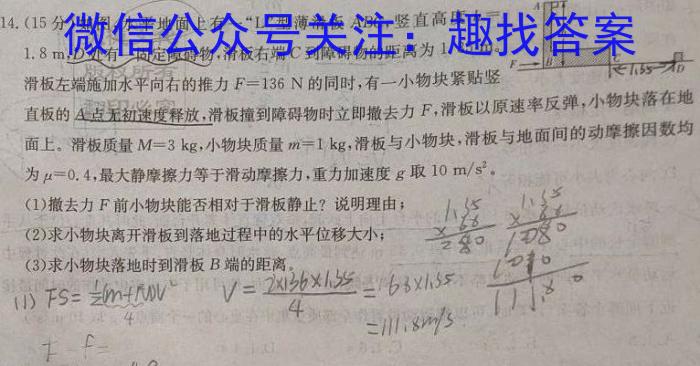 微信公众号关注：趣找答案
14.(15分)
水平地面上有一"L"型薄滑板ABC,竖直高度
1.8 m,D处有一固定障碍物,滑板右端C到障碍物的距离为1
滑板左端施加水平向右的推力F=136 N的同时,有一小物块紧贴竖
直板的A点无初速度释放,滑板撞到障碍物时立即撤去力F,滑板以原速率反弹,小物块落在地
面上。滑板质量M=3 kg,小物块质量m=1 kg,滑板与小物块,滑板与地面间的动摩擦因数均
为μ=0.4,最大静摩擦力等于滑动摩擦力,重力加速度g取10 m/s².
(1)撤去力F前小物块能否相对于滑板静止?说明理由;
(2)求小物块离开滑板到落地过程中的水平位移大小;
(3)求小物块落地时到滑板B端的距离。
A
F B C D
1.55
(1) FS=
V=2×136×1.55/4=68×1.55
=111.8m/s
F f=